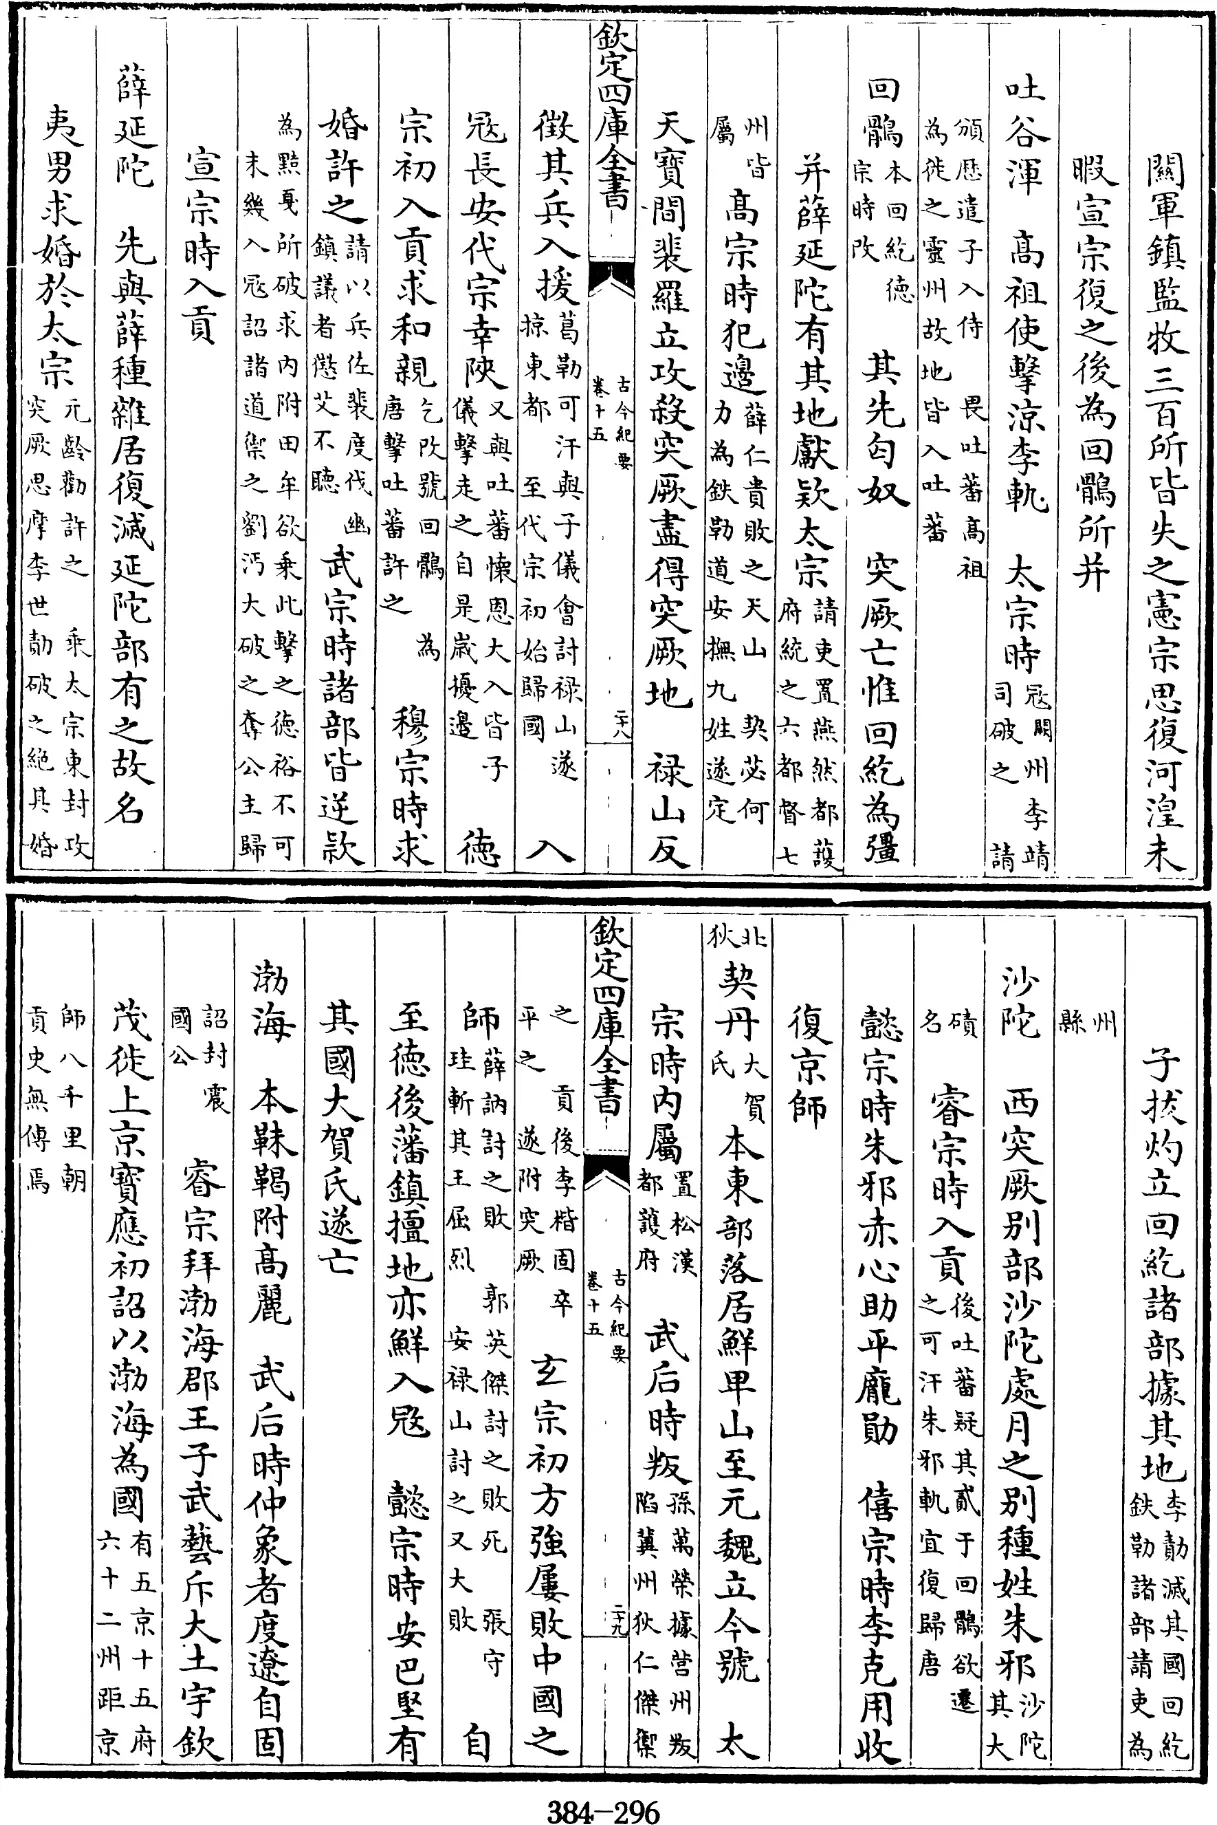 闗軍鎮監牧三百所皆失之憲宗思復河湟未
暇宣宗復之後為回鶻所并
吐谷渾 髙祖使擊涼李軌 太宗時 冦闗州李靖
司破之 請
頒厯遣子入侍 畏吐蕃髙祖
為徙之靈州故地皆入吐蕃
回鶻 本回紇徳
宗時改 其先匈奴 突厥亡惟回紇為彊
并薛延陀有其地獻欵太宗 請吏置燕然都䕶
府統之六都督七
州皆
屬 髙宗時犯邊 薛仁貴敗之天山 契苾何
力為鉄勒道安撫九姓遂定
天寶間裴羅立攻殺突厥盡得突厥地 禄山反
欽定四庫全書 古今紀要
卷十五 二十八
徵其兵入援 葛勒可汗與子儀會討禄山遂
掠東都 至代宗初始歸國 入
冦長安代宗幸陜 又與吐蕃懐恩大入皆子
儀擊走之自是嵗擾邊 徳
宗初入貢求和親 乞改號回鶻 為
唐擊吐蕃許之 穆宗時求
婚許之 請以兵佐裴度伐幽
鎮議者懲艾不聽 武宗時諸部皆逆款
為黠戛所破求内附田牟欲乗此擊之徳裕不可
未幾入冦詔諸道禦之劉沔大破之奪公主歸
宣宗時入貢
薛延陀 先與薛種雜居復滅延陀部有之故名
夷男求婚於太宗 元齡勸許之 乗太宗東封攻
突厥思摩李世勣破之絶其婚
子㧞灼立回紇諸部據其地 李勣滅其國回紇
鉄勒諸部請吏為
州
縣
沙陀 西突厥别部沙陀處月之别種姓朱邪 沙陀
其大
磧
名 睿宗時入貢 後吐蕃疑其貳于回鶻欲遷
之可汗朱邪軌宜復歸唐
懿宗時朱邪赤心助平龐勛 僖宗時李克用收
復京師
北
狄 契丹 大賀
氏 本東部落居鮮卑山至元魏立今號 太
宗時内屬 置松漠
都䕶府 武后時叛 孫萬榮據營州叛
陷冀州狄仁傑禦
欽定四庫全書 古今紀要
卷十五 二十九
之 貢後李楷固卒
平之 遂附突厥 玄宗初方強屢敗中國之
師 薛訥討之敗 郭英傑討之敗死 張守
珪斬其王屈烈 安禄山討之又大敗 自
至徳後藩鎮擅地亦鮮入冦 懿宗時安巴堅有
其國大賀氏遂亡
渤海 本靺鞨附髙麗 武后時仲象者度遼自固
詔封震
國公 睿宗拜渤海郡王子武藝斥大土宇欽
茂徙上京寶應初詔以渤海為國 有五京十五府
六十二州距京
師八千里朝
貢史無傳焉
384-296